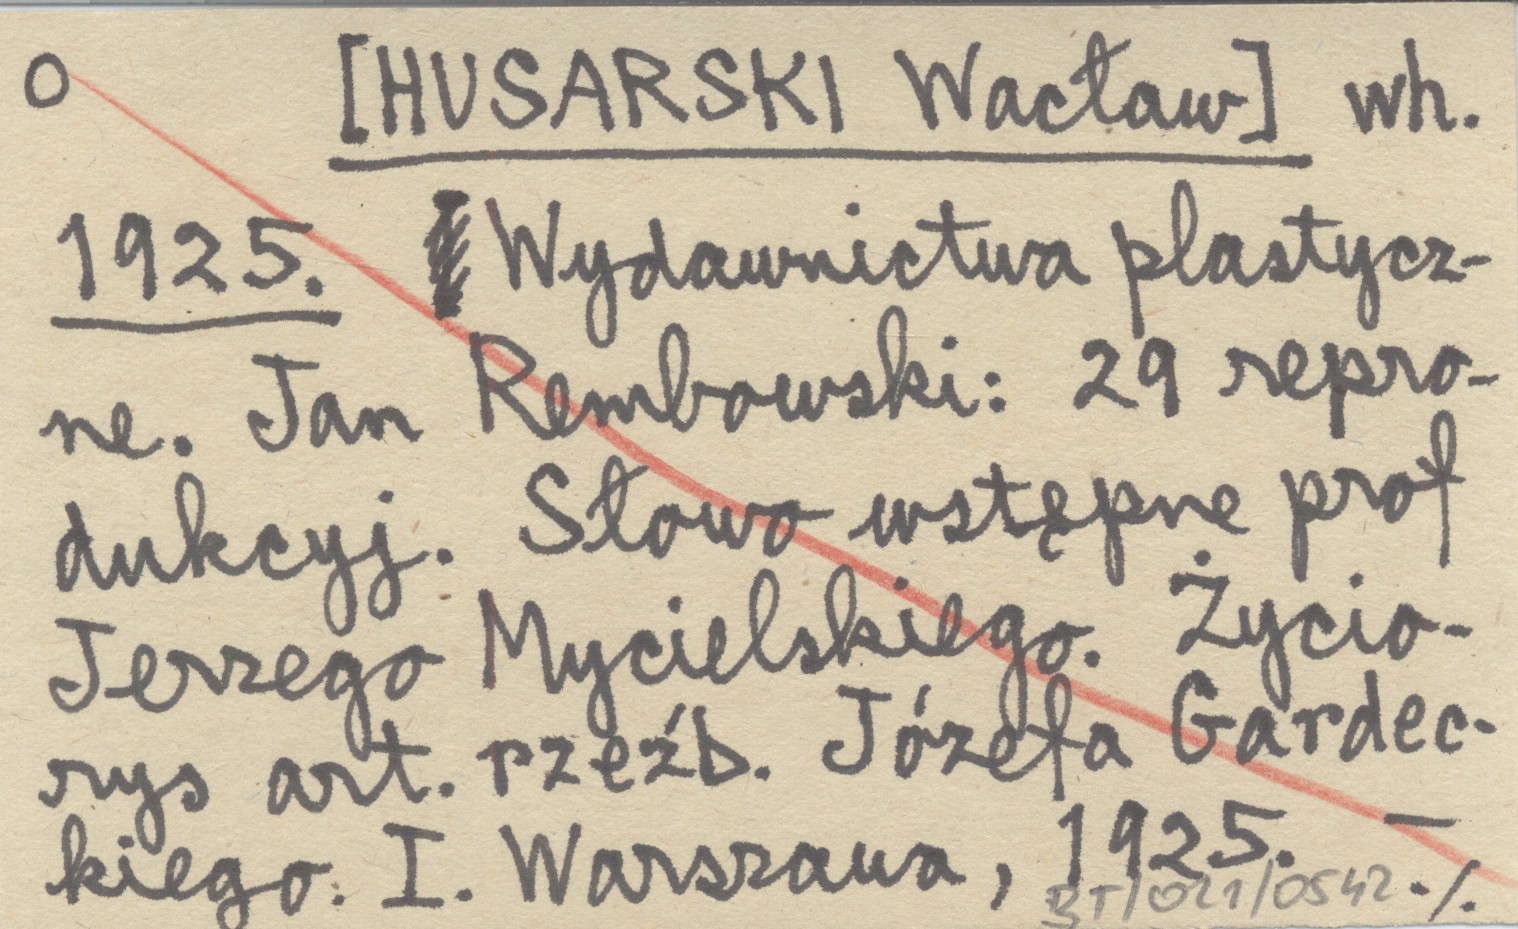 O [HUSARSKI Wacław] wh.
1925. Wydawnictwa plastycz-
ne. Jan Rembowski: 29 repro-
dukcyj. Słowo wstępne prof
Jerzego Mycielskiego. Życio-
rys art. rzeźb. Józefa Gardec-
kiego. I. Warszawa, 1925. —
BT/021/0542 ./.